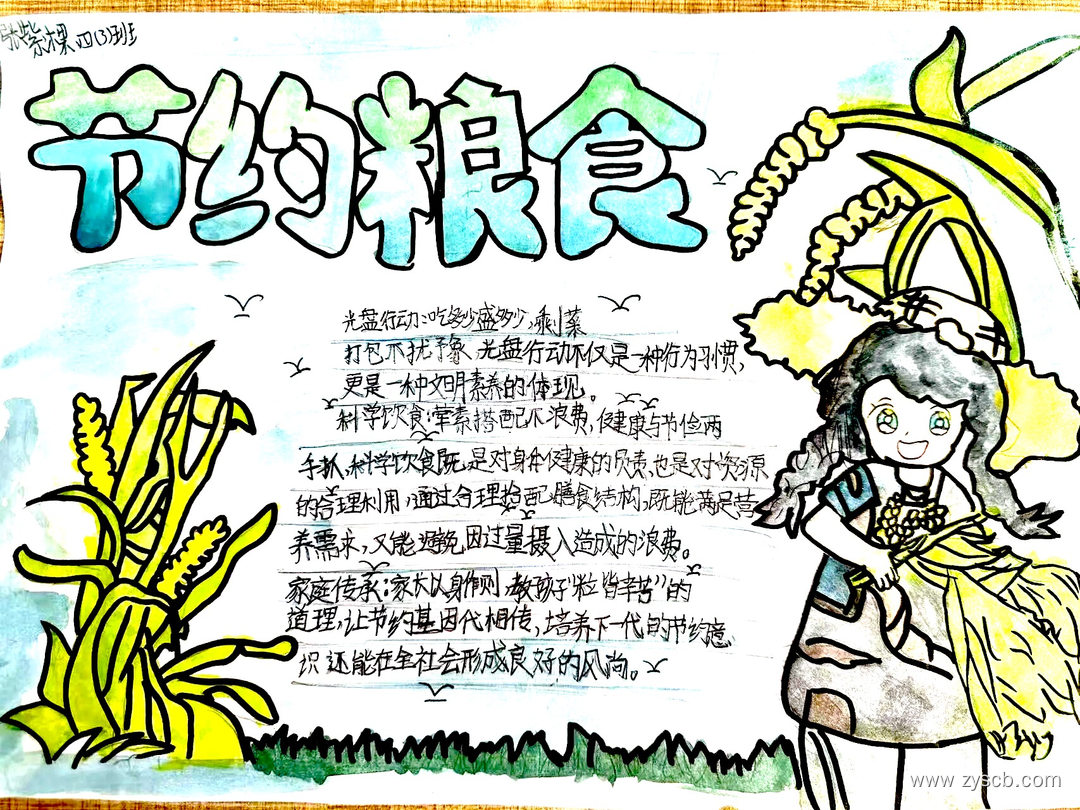 张紫棵 四(3)班
节约粮食
光盘行动:吃多少盛多少,剩菜
打包不犹予象,光盘行动不仅是一种行为习惯,
更是一种文明素养的体现。
科学饮食:荤素搭配不浪费,保健康与节俭两
手抓,科学饮食既是对身体健康的负责,也是对资源
的合理利用,通过合理搭配膳食结构,既能满足营
养需求,又能避免因过量摄入造成的浪费。
家庭传承:家长以身作则,教孩子“粒粒皆辛苦”的
道理,让节约基因代代相传,培养下一代的节约意
识还能在全社会形成良好的风尚。
www.zyscb.com